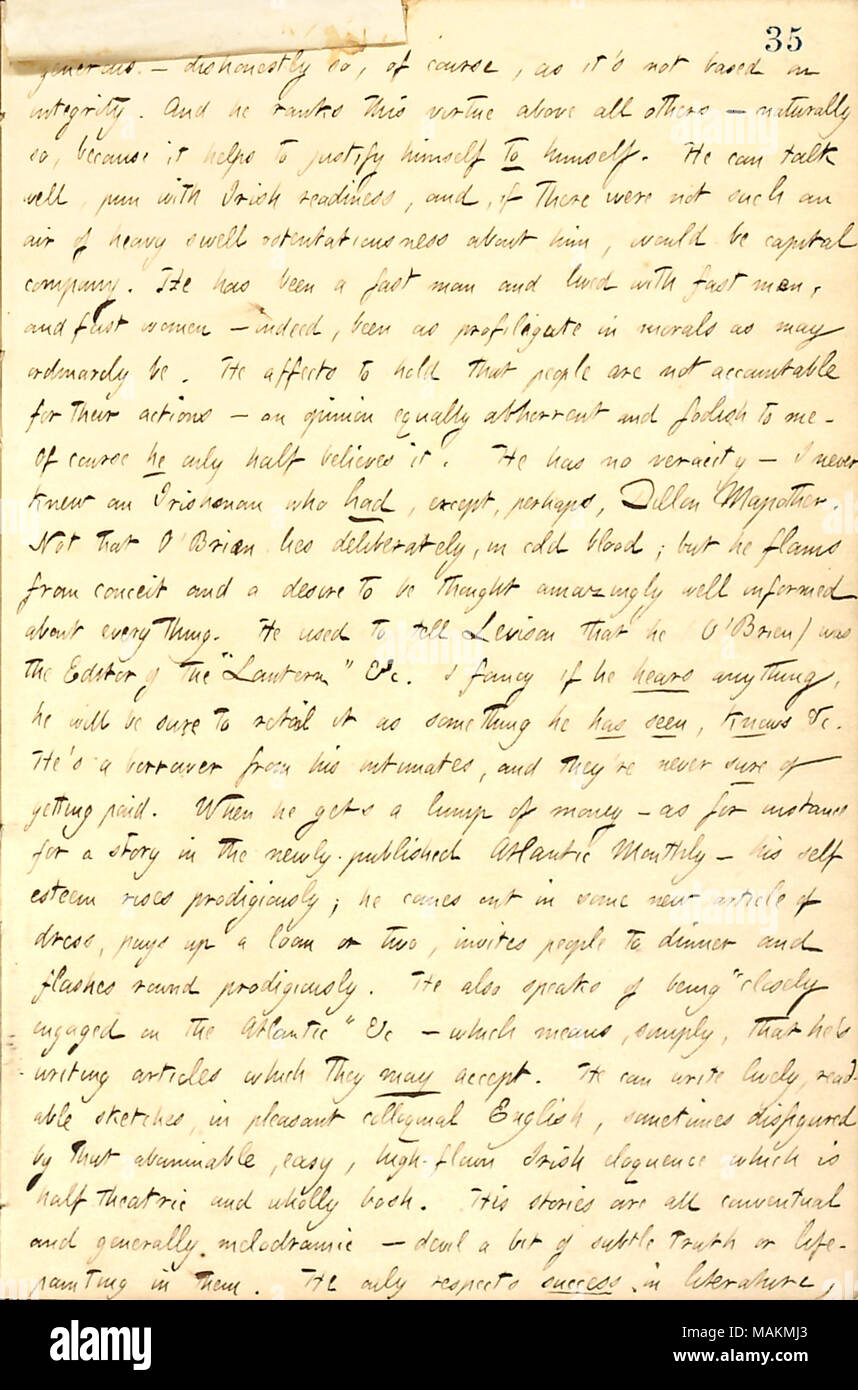 35
generous — dishonestly so, of course, as it's not based on
integrity. And he ranks this virtue above all others — naturally
so, because it helps to justify himself to himself. He can talk
well, pun with Irish readiness, and, if there were not such an
air of heavy swell ostentatiousness about him, would be capital
company. He has been a fast man and lived with fast men,
and fast women — indeed, been as profiligate in morals as may
ordinarily be. He affects to hold that people are not accountable
for their actions — an opinion equally abhorrent and foolish to me.
Of course he only half believes it. He has no veracity — I never
knew an Irishman who had, except, perhaps, Dillon Mapother.
Not that O'Brien lies deliberately, in cold blood; but he flams
from conceit and a desire to be thought amazingly well informed
about everything. He used to tell Levison that he (O'Brien) was
the Editor of the "Lantern" &c. I fancy if he hears anything,
he will be sure to retail it as something he has seen, knows &c.
He's a borrower from his intimates, and they're never sure of
getting paid. When he gets a lump of money — as for instance
for a story in the newly-published Atlantic Monthly — his self
esteem rises prodigiously; he comes out in some new article of
dress, pays up a loan or two, invites people to dinner and
flashes round prodigiously. He also speaks of being "closely
engaged on the Atlantic" &c — which means, simply, that he's
writing articles which they may accept. He can write lively, read-
able sketches, in pleasant colloquial English, sometimes disfigured
by that abominable, easy, high-flown Irish eloquence which is
half theatric and wholly bosh. His stories are all conventual
and generally melodramic — devil a bit of subtle truth or life-
painting in them. He only respects success in literature,
alamy
Image ID: MAKMJ3
www.alamy.com